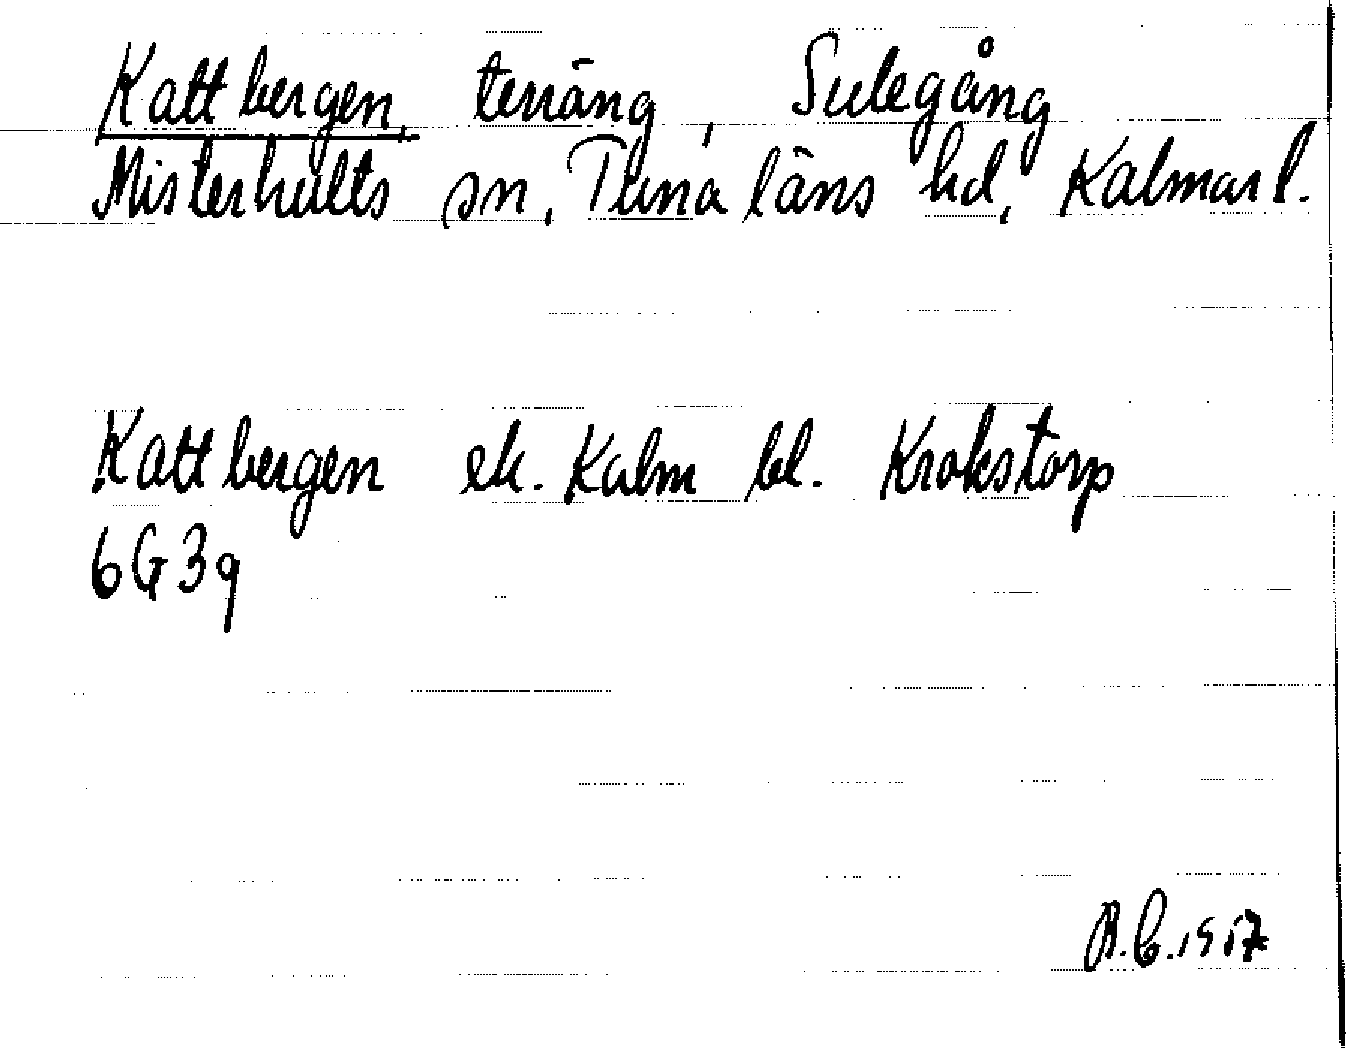 Kattbergen, terräng, Sulegång
Misterhults sn, Tuna läns hd, Kalmar l.
Kattbergen ek. Kalm bl. Krokstorp
6G3g